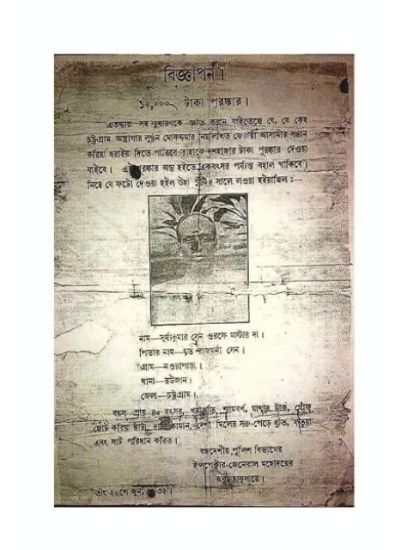 বিজ্ঞাপন।
১০,০০০ টাকা পুরস্কার।
এতদ্দ্বারা সর্ব্বসাধারণকে জ্ঞাত করান যাইতেছে যে, যে কেহ
চট্টগ্রাম অস্ত্রাগার লুণ্ঠন মোকদ্দমার নিম্নলিখিত ফেরারী আসামীর সন্ধান
করিয়া ধরাইয়া দিতে পারিবে তাহাকে দশহাজার টাকা পুরস্কার দেওয়া
যাইবে। এই পুরস্কার অদ্য হইতে একবৎসর পর্য্যন্ত বহাল থাকিবে।
নিম্নে যে ফটো দেওয়া হইল উহা সালে লওয়া হইয়াছিল :—
নাম—সূর্য্যকুমার সেন ওরফে মাস্টার দা।
পিতার নাম—মৃত রাজমনী সেন।
গ্রাম—নওয়াপাড়া।
থানা—রউজান।
জেলা—চট্টগ্রাম।
বয়স প্রায় বৎসর, শ্যামবর্ণ, মাথায় টাক, গোঁফ
ছোট করিয়া ছাঁটা, দাড়ি কামান, দেশী মিলের সরু-পেড়ে ধুতি,
এবং সার্ট পরিধান করিত।
বঙ্গদেশীয় পুলিশ বিভাগের
ইন্সপেক্টর-জেনেরাল মহোদয়ের
অনুমত্যনুসারে।
তাং ২২শে জুন,